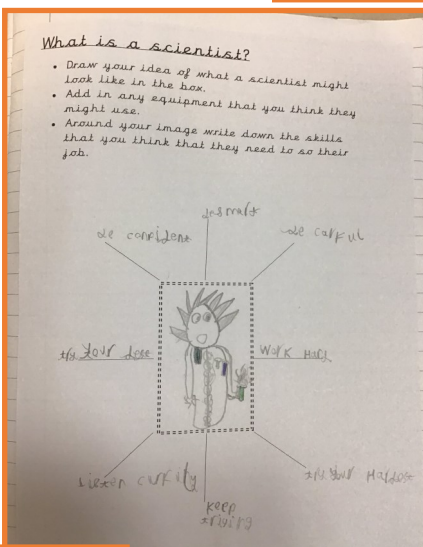 What is a scientist?
• Draw your idea of what a scientist might
look like in the box.
• Add in any equipment that you think they
might use.
• Around your image write down the skills
that you think that they need to so their
job.
be smart
be confident
be carful
try your best
Work hard
listen curfily
try your hardest
keep
triying